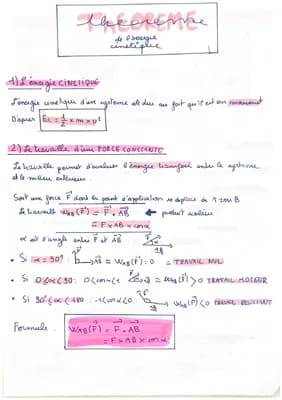 THEOREME
de l'énergie
cinétique
1) L'énergie CINETIQUE
L'énergie cinétique d'un système est due au fait qu'il est en mouvement
D'après Ec = 1/2 x m x v²
2) Le travail d'une FORCE CONSTANTE
Le travail permet d'évaluer l'énergie transférée entre le système
et le milieu extérieur.
Soit une force F⃗ dont le point d'application se déplace de A vers B
Le travail W_AB(F⃗) = F⃗ . AB⃗ ← produit scalaire
= F x AB x cos α
α est l'angle entre F⃗ et AB⃗
• Si α = 90° : AB⃗ = W_AB(F⃗) = 0 = TRAVAIL NUL
• Si 0 ≤ α < 90 : 0 < cos α < 1 = W_AB(F⃗) > 0 TRAVAIL MOTEUR
• Si 90° < α < 180 : -1 < cos α < 0 : W_AB(F⃗) < 0 TRAVAIL RESISTANT
Formule : W_AB(F⃗) = F⃗ . AB⃗
= F x AB x cos α